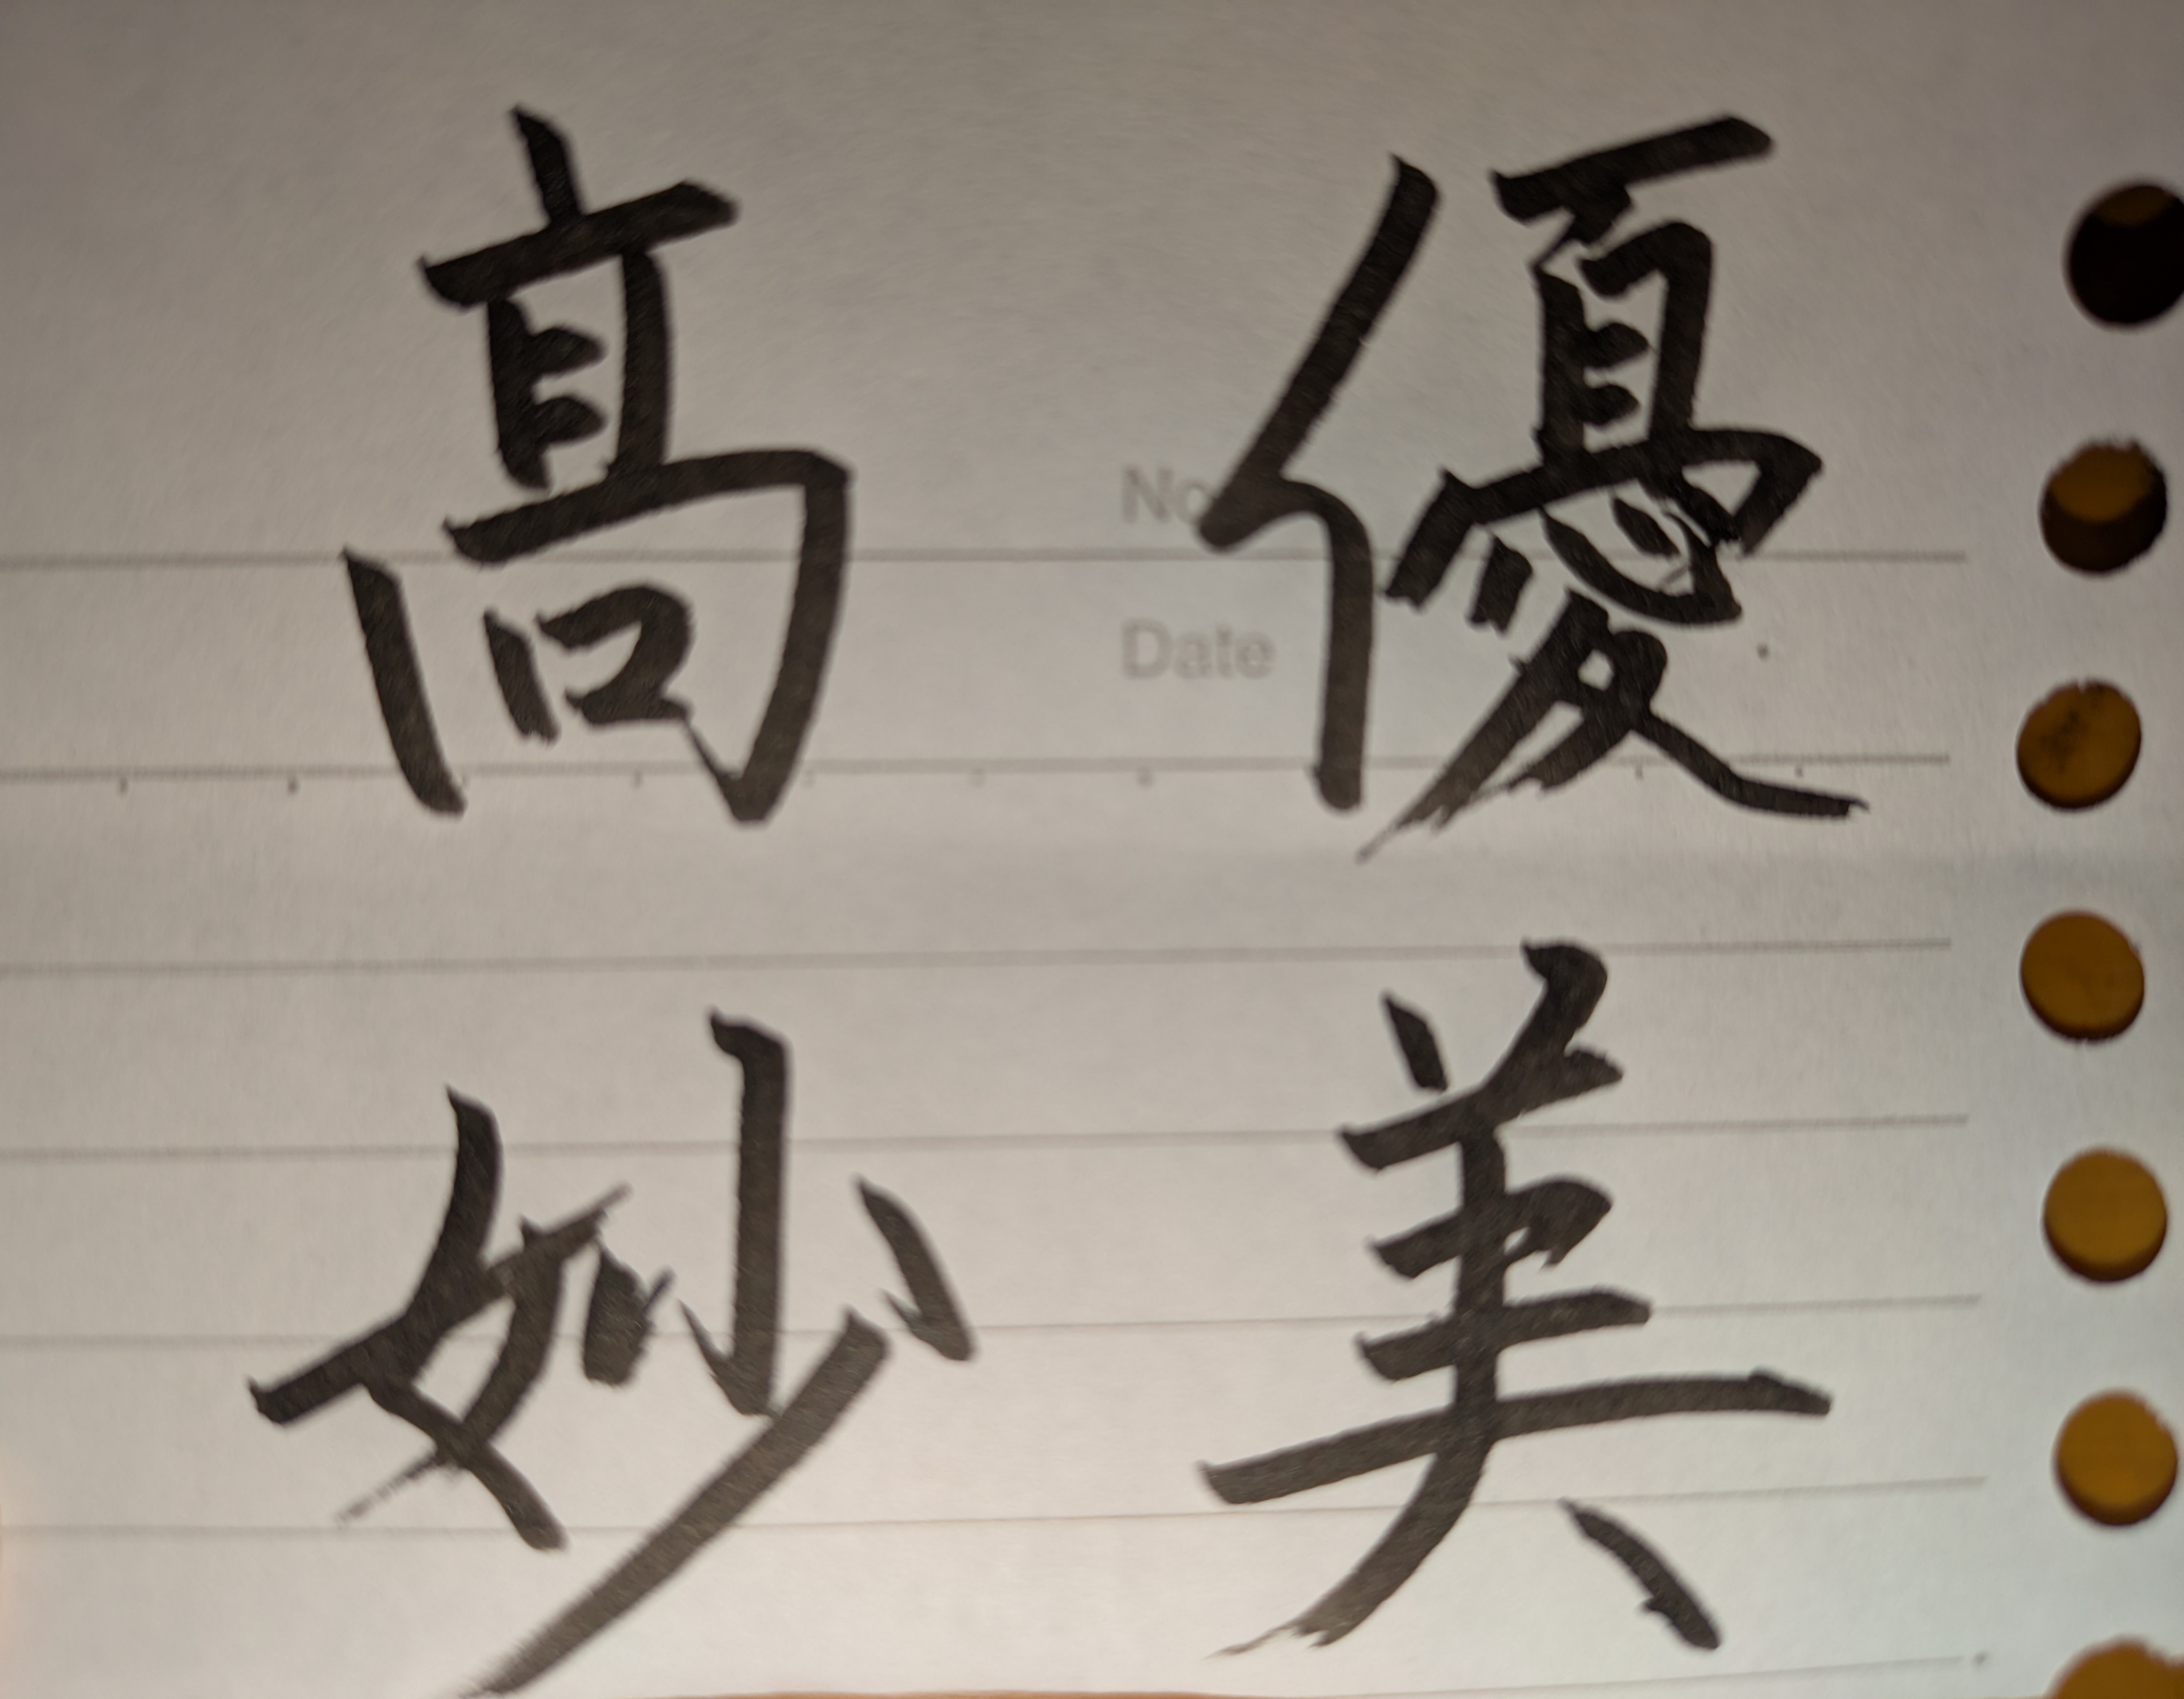 優美
髙妙
No.
Date